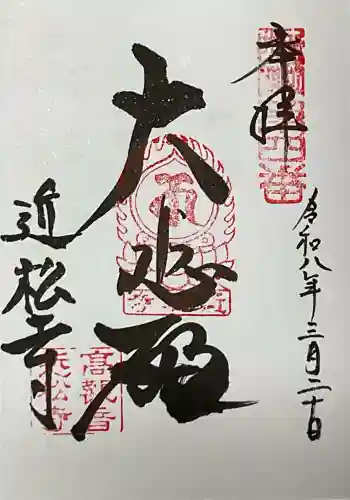 奉拝
令和八年三月二十日
大悲殿
近松寺
高観音
近松寺